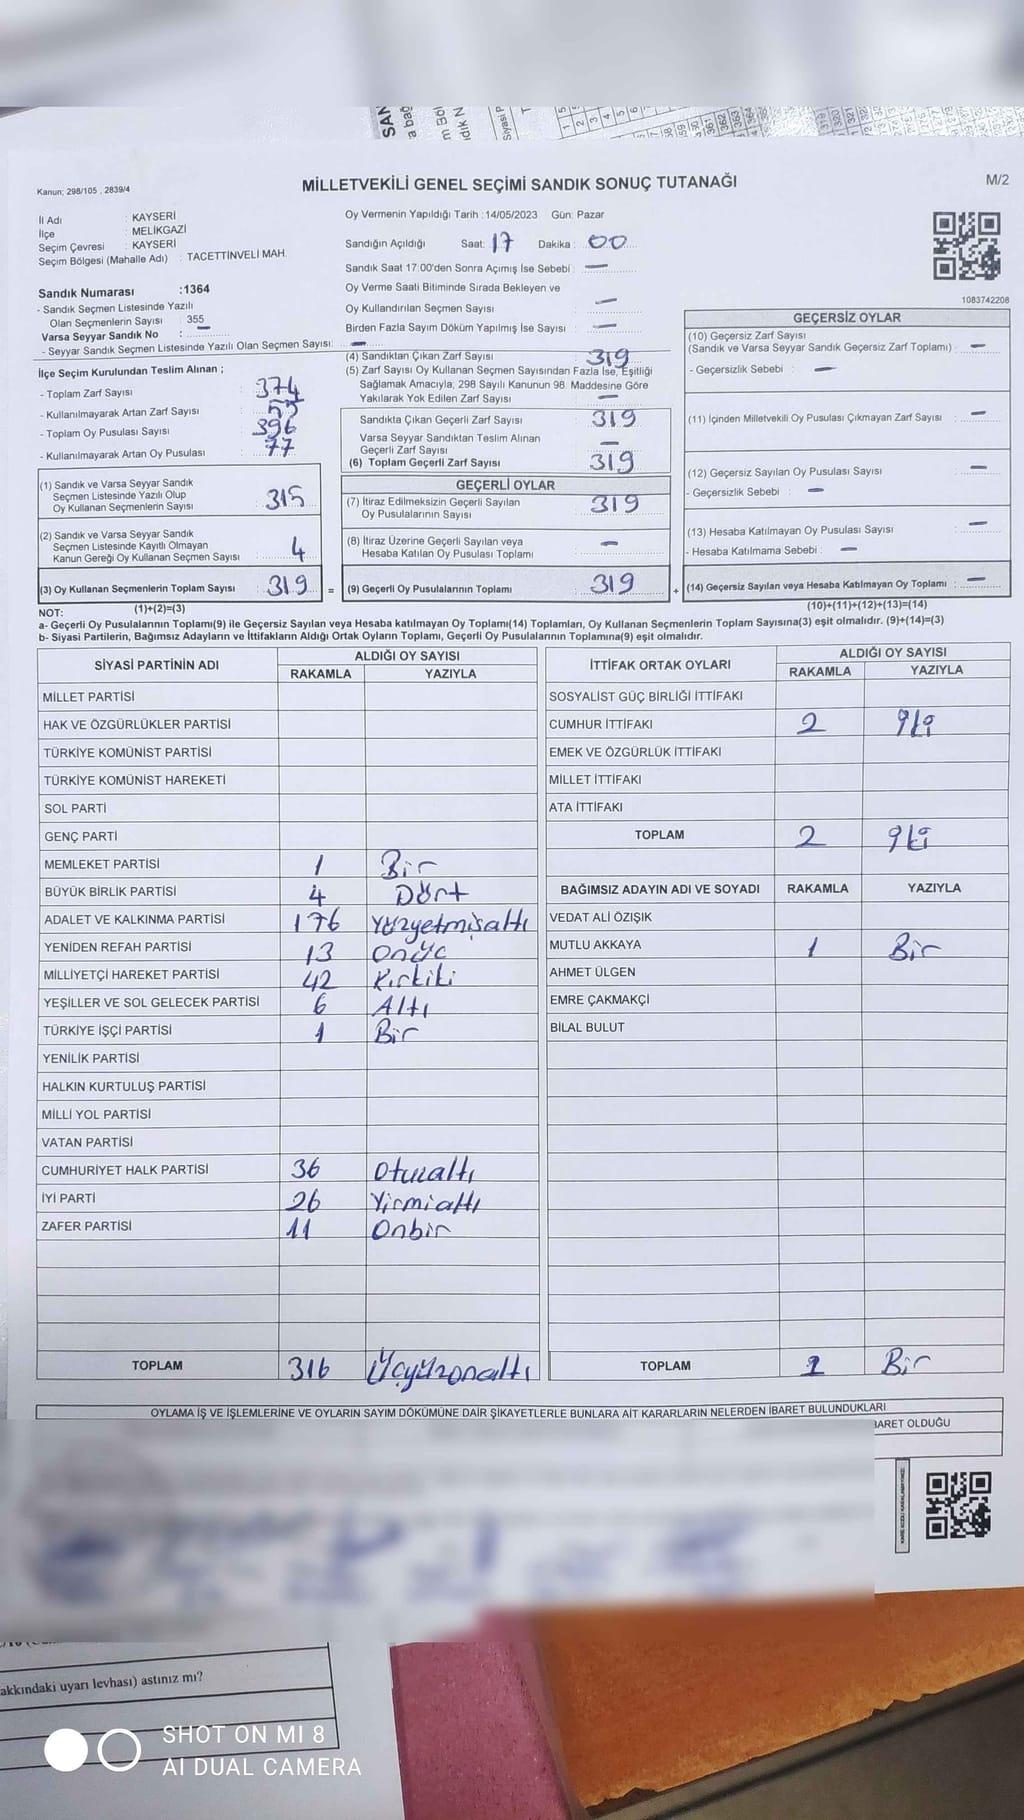 Kanun; 298/105 , 2839/4
MİLLETVEKİLİ GENEL SEÇİMİ SANDIK SONUÇ TUTANAĞI
M/2
İl Adı : KAYSERİ
İlçe : MELİKGAZİ
Seçim Çevresi : KAYSERİ
Seçim Bölgesi (Mahalle Adı) : TACETTİNVELİ MAH.
Sandık Numarası :1364
- Sandık Seçmen Listesinde Yazılı
Olan Seçmenlerin Sayısı : 355
Varsa Seyyar Sandık No : —
- Seyyar Sandık Seçmen Listesinde Yazılı Olan Seçmen Sayısı: —
Oy Vermenin Yapıldığı Tarih :14/05/2023 Gün: Pazar
Sandığın Açıldığı Saat: 17 Dakika : 00
Sandık Saat 17:00'den Sonra Açımış İse Sebebi : —
Oy Verme Saati Bitiminde Sırada Bekleyen ve
Oy Kullandırılan Seçmen Sayısı : —
Birden Fazla Sayım Döküm Yapılmış İse Sayısı : —
1083742208
İlçe Seçim Kurulundan Teslim Alınan ;
- Toplam Zarf Sayısı : 374
- Kullanılmayarak Artan Zarf Sayısı : 55
- Toplam Oy Pusulası Sayısı : 396
- Kullanılmayarak Artan Oy Pusulası : 77
(1) Sandık ve Varsa Seyyar Sandık
Seçmen Listesinde Yazılı Olup
Oy Kullanan Seçmenlerin Sayısı : 315
(2) Sandık ve Varsa Seyyar Sandık
Seçmen Listesinde Kayıtlı Olmayan
Kanun Gereği Oy Kullanan Seçmen Sayısı : 4
(3) Oy Kullanan Seçmenlerin Toplam Sayısı : 319 =
(1)+(2)=(3)
(4) Sandıktan Çıkan Zarf Sayısı : 319
(5) Zarf Sayısı Oy Kullanan Seçmen Sayısından Fazla İse, Eşitliği
Sağlamak Amacıyla, 298 Sayılı Kanunun 98. Maddesine Göre
Yakılarak Yok Edilen Zarf Sayısı : —
Sandıkta Çıkan Geçerli Zarf Sayısı : 319
Varsa Seyyar Sandıktan Teslim Alınan
Geçerli Zarf Sayısı : —
(6) Toplam Geçerli Zarf Sayısı : 319
GEÇERLİ OYLAR
(7) İtiraz Edilmeksizin Geçerli Sayılan
Oy Pusulalarının Sayısı : 319
(8) İtiraz Üzerine Geçerli Sayılan veya
Hesaba Katılan Oy Pusulası Toplamı : —
(9) Geçerli Oy Pusulalarının Toplamı : 319 +
GEÇERSİZ OYLAR
(10) Geçersiz Zarf Sayısı
(Sandık ve Varsa Seyyar Sandık Geçersiz Zarf Toplamı) : —
- Geçersizlik Sebebi : —
(11) İçinden Milletvekili Oy Pusulası Çıkmayan Zarf Sayısı : —
(12) Geçersiz Sayılan Oy Pusulası Sayısı : —
- Geçersizlik Sebebi : —
(13) Hesaba Katılmayan Oy Pusulası Sayısı : —
- Hesaba Katılmama Sebebi : —
(14) Geçersiz Sayılan veya Hesaba Katılmayan Oy Toplamı : —
(10)+(11)+(12)+(13)=(14)
NOT:
a- Geçerli Oy Pusulalarının Toplamı(9) ile Geçersiz Sayılan veya Hesaba katılmayan Oy Toplamı(14) Toplamları, Oy Kullanan Seçmenlerin Toplam Sayısına(3) eşit olmalıdır. (9)+(14)=(3)
b- Siyasi Partilerin, Bağımsız Adayların ve İttifakların Aldığı Ortak Oyların Toplamı, Geçerli Oy Pusulalarının Toplamına(9) eşit olmalıdır.
SİYASİ PARTİNİN ADI ALDIĞI OY SAYISI
RAKAMLA YAZIYLA
MİLLET PARTİSİ
HAK VE ÖZGÜRLÜKLER PARTİSİ
TÜRKİYE KOMÜNİST PARTİSİ
TÜRKİYE KOMÜNİST HAREKETİ
SOL PARTİ
GENÇ PARTİ
MEMLEKET PARTİSİ 1 Bir
BÜYÜK BİRLİK PARTİSİ 4 Dört
ADALET VE KALKINMA PARTİSİ 176 Yüzyetmişaltı
YENİDEN REFAH PARTİSİ 13 Onüç
MİLLİYETÇİ HAREKET PARTİSİ 42 Kırkiki
YEŞİLLER VE SOL GELECEK PARTİSİ 6 Altı
TÜRKİYE İŞÇİ PARTİSİ 1 Bir
YENİLİK PARTİSİ
HALKIN KURTULUŞ PARTİSİ
MİLLİ YOL PARTİSİ
VATAN PARTİSİ
CUMHURİYET HALK PARTİSİ 36 Otuzaltı
İYİ PARTİ 26 Yirmialtı
ZAFER PARTİSİ 11 Onbir
TOPLAM 316 Üçyüzonaltı
İTTİFAK ORTAK OYLARI ALDIĞI OY SAYISI
RAKAMLA YAZIYLA
SOSYALİST GÜÇ BİRLİĞİ İTTİFAKI
CUMHUR İTTİFAKI 2 İki
EMEK VE ÖZGÜRLÜK İTTİFAKI
MİLLET İTTİFAKI
ATA İTTİFAKI
TOPLAM 2 İki
BAĞIMSIZ ADAYIN ADI VE SOYADI RAKAMLA YAZIYLA
VEDAT ALİ ÖZIŞIK
MUTLU AKKAYA 1 Bir
AHMET ÜLGEN
EMRE ÇAKMAKÇİ
BİLAL BULUT
TOPLAM 1 Bir
OYLAMA İŞ VE İŞLEMLERİNE VE OYLARIN SAYIM DÖKÜMÜNE DAİR ŞİKAYETLERLE BUNLARA AİT KARARLARIN NELERDEN İBARET BULUNDUKLARI
BARET OLDUĞU
akkındaki uyarı levhası) astınız mı?
SHOT ON MI 8
AI DUAL CAMERA